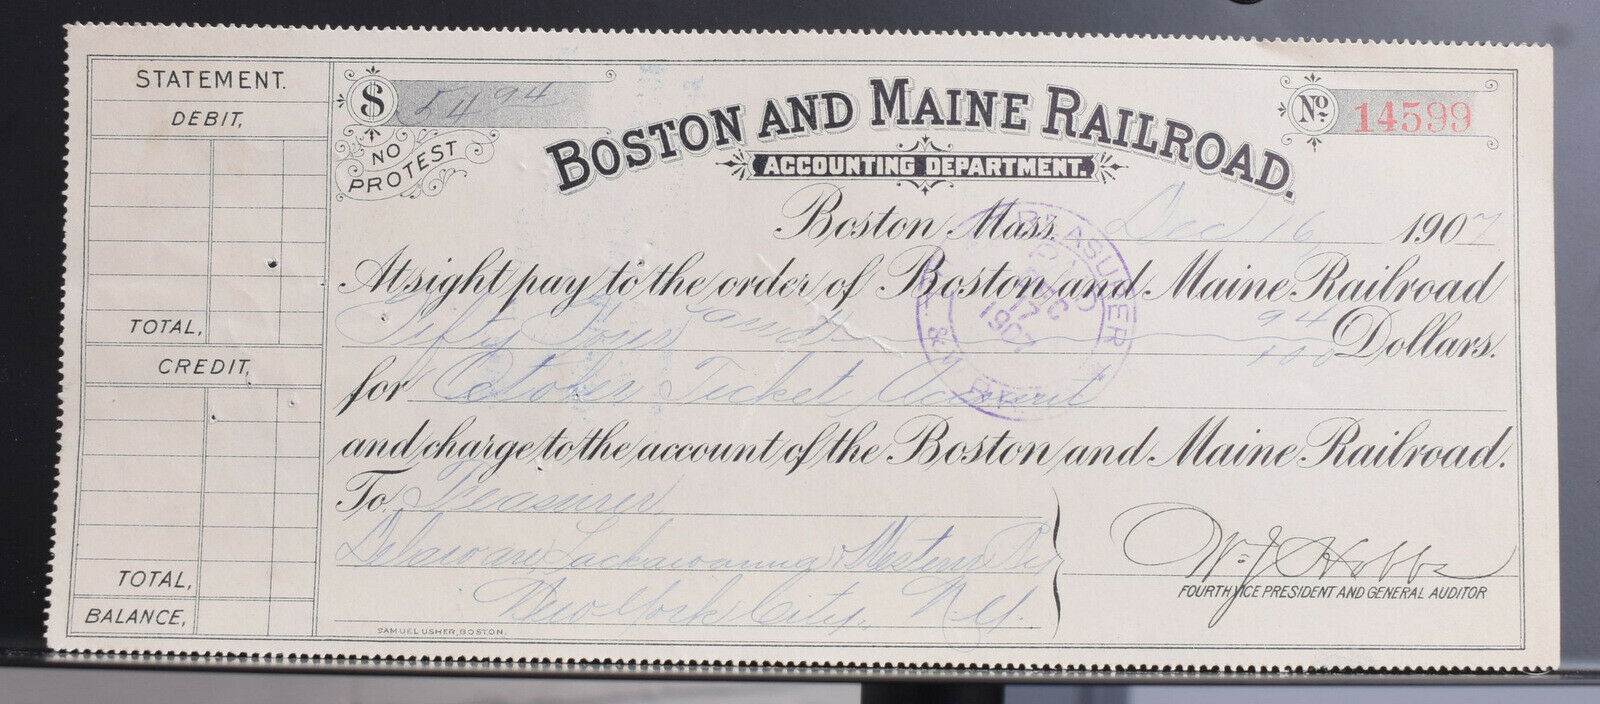 STATEMENT.
DEBIT,
TOTAL,
CREDIT,
TOTAL,
BALANCE,
$ 54 94
NO PROTEST
BOSTON AND MAINE RAILROAD.
ACCOUNTING DEPARTMENT.
No. 14599
Boston Mass. Dec 16 1907
At sight pay to the order of Boston and Maine Railroad
Fifty Four and 94/100 Dollars.
for October Ticket Account
and charge to the account of the Boston and Maine Railroad.
To Treasurer
Delaware, Lackawanna & Western Ry
New York City, N.Y.
Wm J Hobbs
FOURTH VICE PRESIDENT AND GENERAL AUDITOR
SAMUEL USHER, BOSTON.
TREASURER
PAID
DEC
17
1907